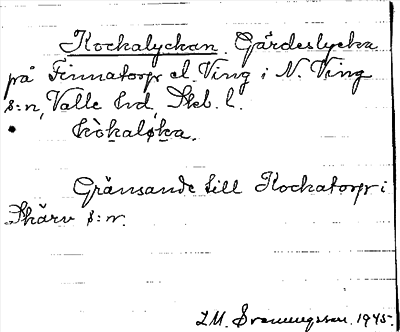 Kockalyckan. Gärdeslycka
på Finnatorp el. Ving i N. Ving
s:n, Valle hd. Skb. l.
• kòkaløka.
Gränsande till Kockatorp i
Skärv s:n.
L.M. Svenungsson. 1945.